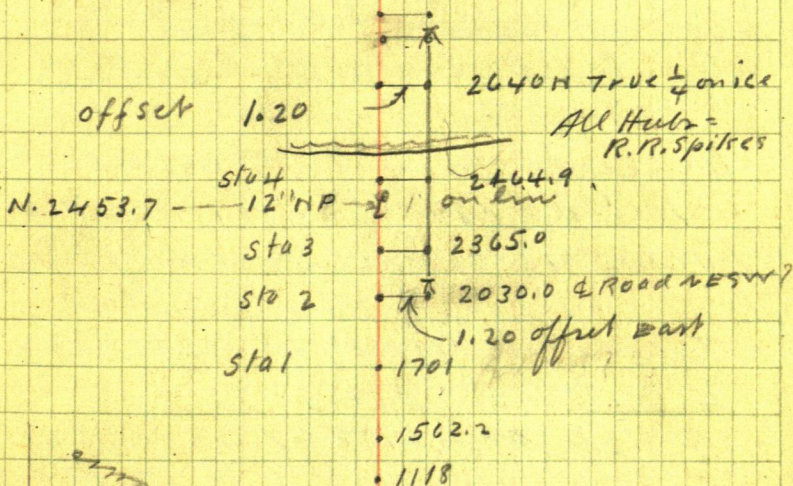 2640 N True 1/4 on ice
offset 1.20
All Hubs =
R.R. Spikes
sta 4
N. 2453.7 - 12" NP on line
sta 3 2365.0
sta 2 2030.0 ℄ Road NESW?
1.20 offset East
sta 1 1701
1562.2
1118